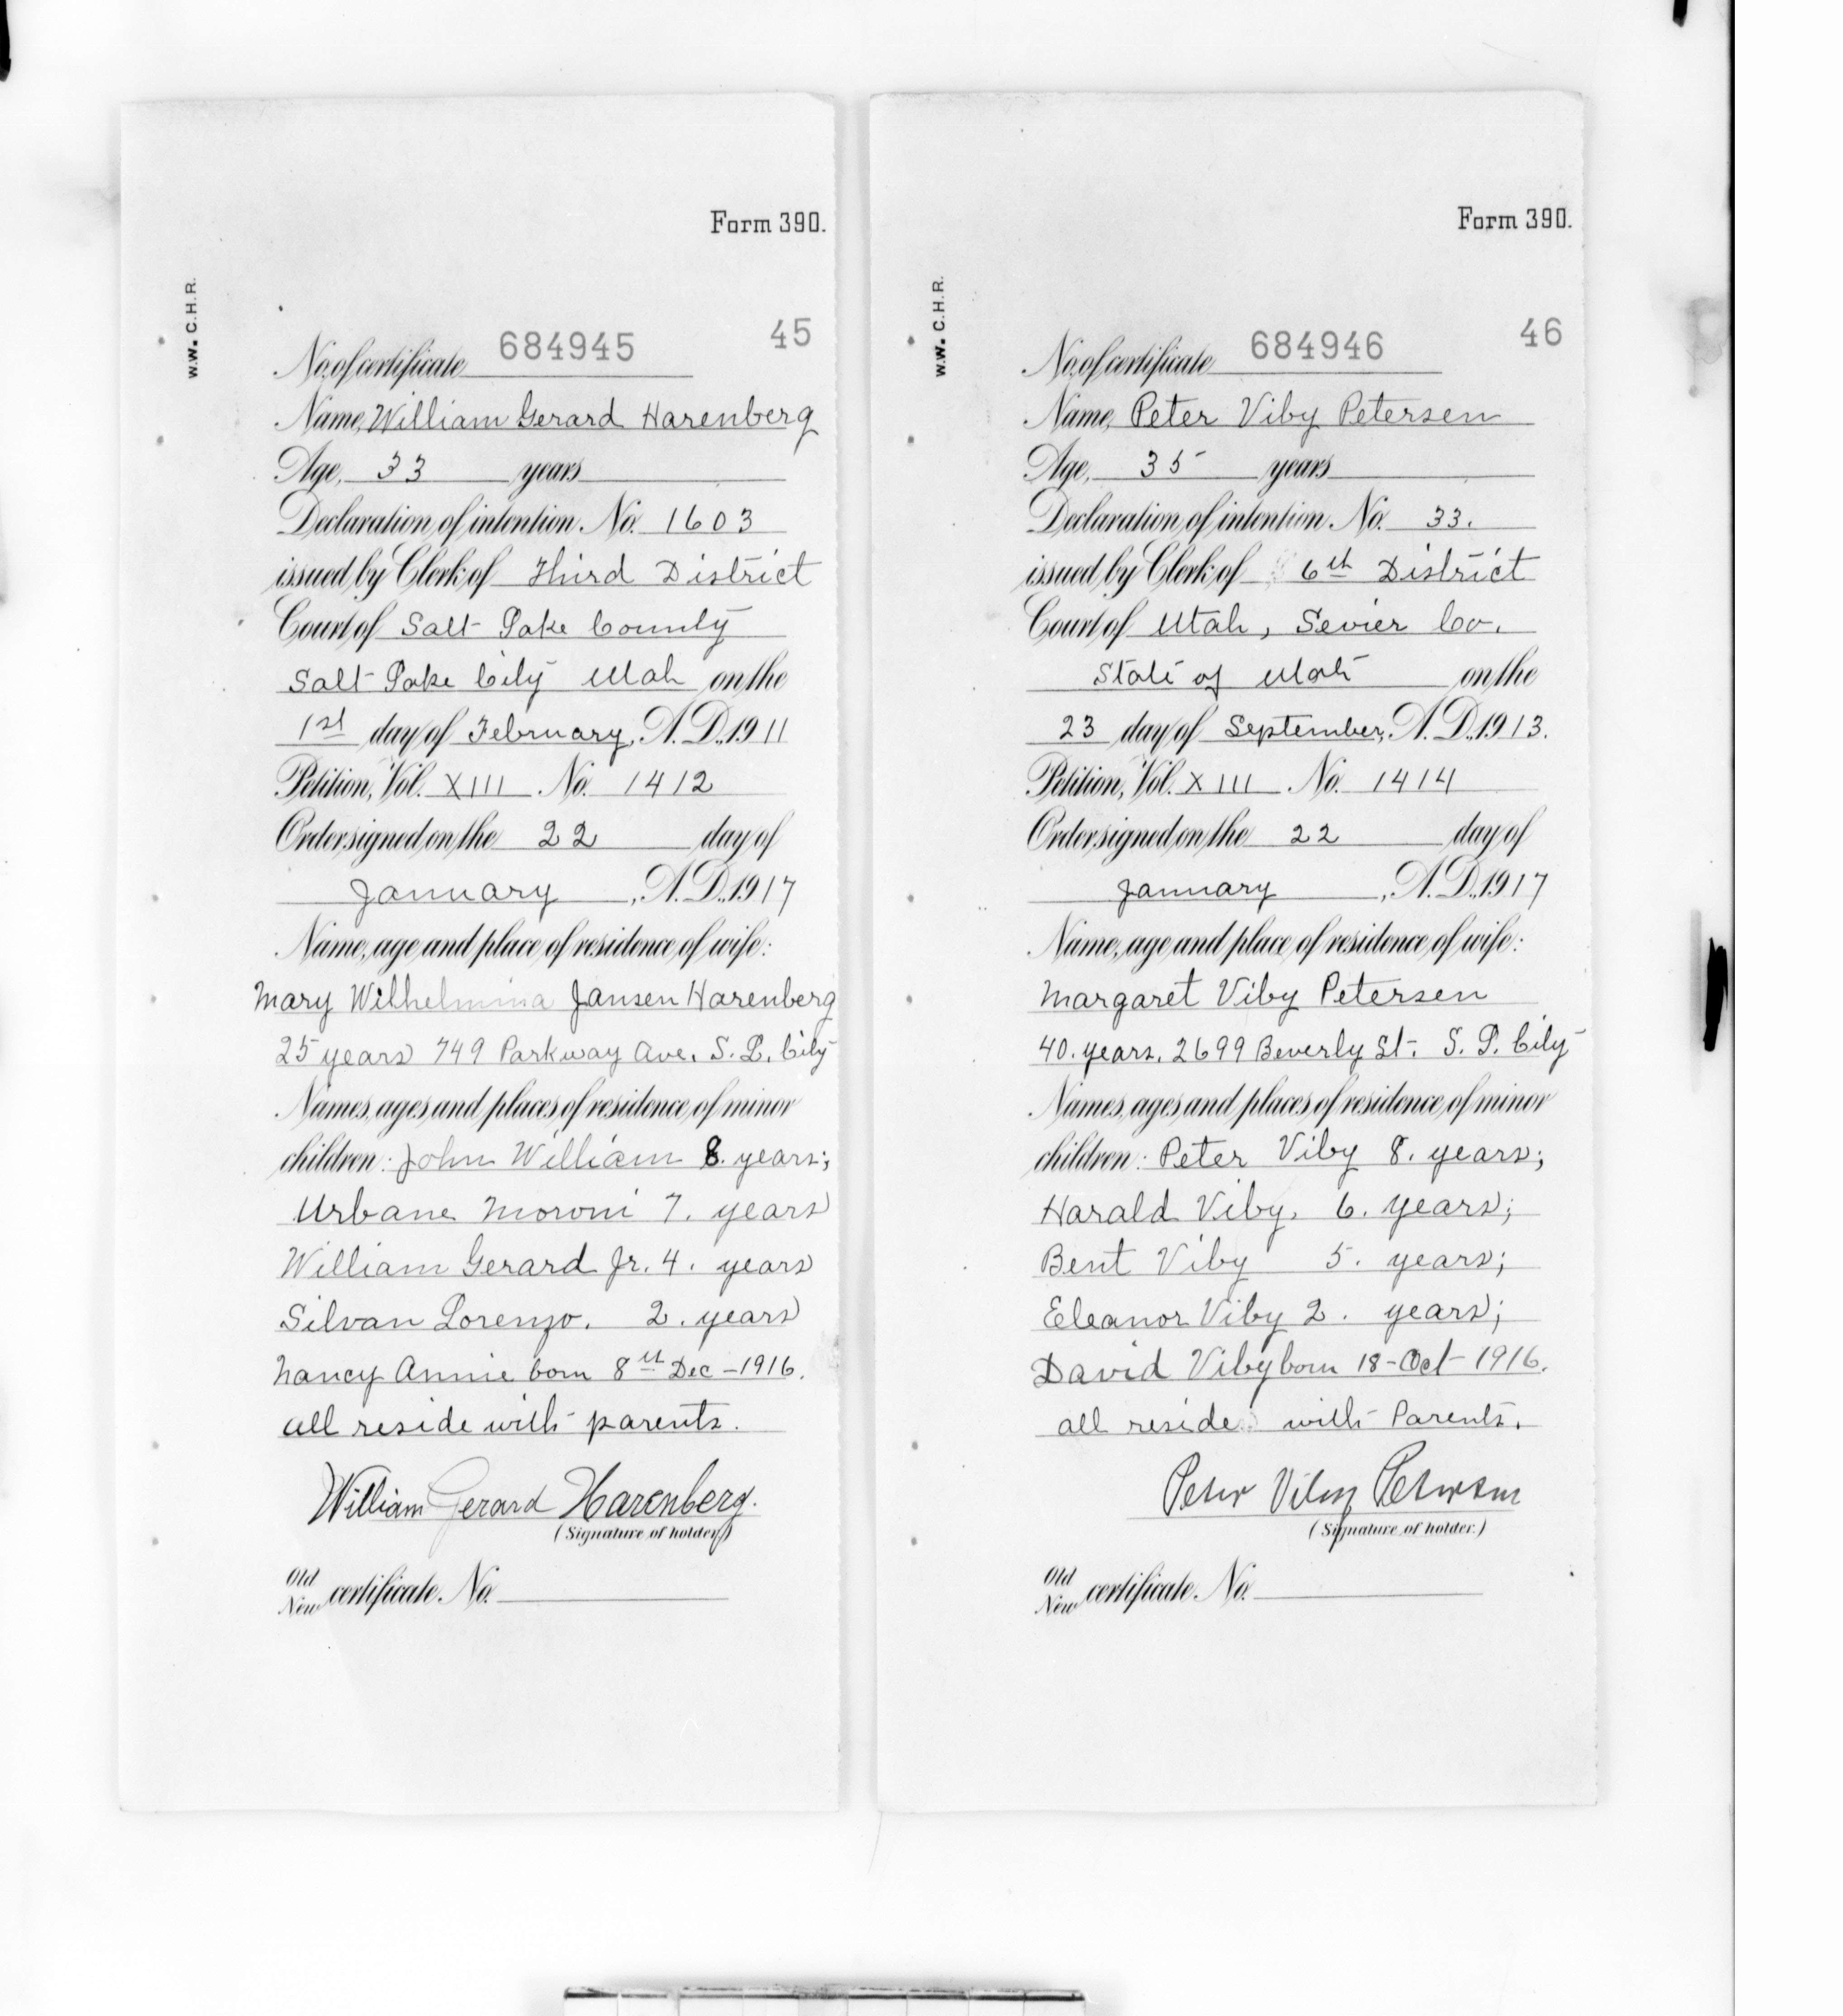 Form 390.
W.W. C.H.R.
45
No. of certificate 684945
Name, William Gerard Harenberg
Age, 33 years
Declaration of intention No. 1603
issued by Clerk of Third District
Court of Salt Lake County
Salt Lake City Utah on the
1st day of February, A.D., 1911
Petition, Vol. XIII No. 1412
Order signed on the 22 day of
January, A.D., 1917
Name, age and place of residence of wife:
Mary Wilhelmina Jansen Harenberg
25 years 749 Parkway Ave. S. L. City
Names, ages and places of residence of minor
children: John William 8. years;
Urbane Moroni 7. years
William Gerard Jr. 4. years
Silvan Lorenzo. 2. years
Nancy Annie born 8th Dec - 1916.
all reside with parents.
William Gerard Harenberg.
(Signature of holder.)
Old
New certificate No.
Form 390.
W.W. C.H.R.
46
No. of certificate 684946
Name, Peter Viby Petersen
Age, 35 years
Declaration of intention No. 33.
issued by Clerk of 6th District
Court of Utah, Sevier Co.
State of Utah on the
23 day of September, A.D., 1913.
Petition, Vol. XIII No. 1414
Order signed on the 22 day of
January, A.D., 1917
Name, age and place of residence of wife:
Margaret Viby Petersen
40. years. 2699 Beverly St. S. L. City
Names, ages and places of residence of minor
children: Peter Viby 8. years;
Harald Viby. 6. years;
Bent Viby 5. years;
Eleanor Viby 2. years;
David Viby born 18 - Oct - 1916.
all reside with Parents.
Peter Viby Petersen
(Signature of holder.)
Old
New certificate No.